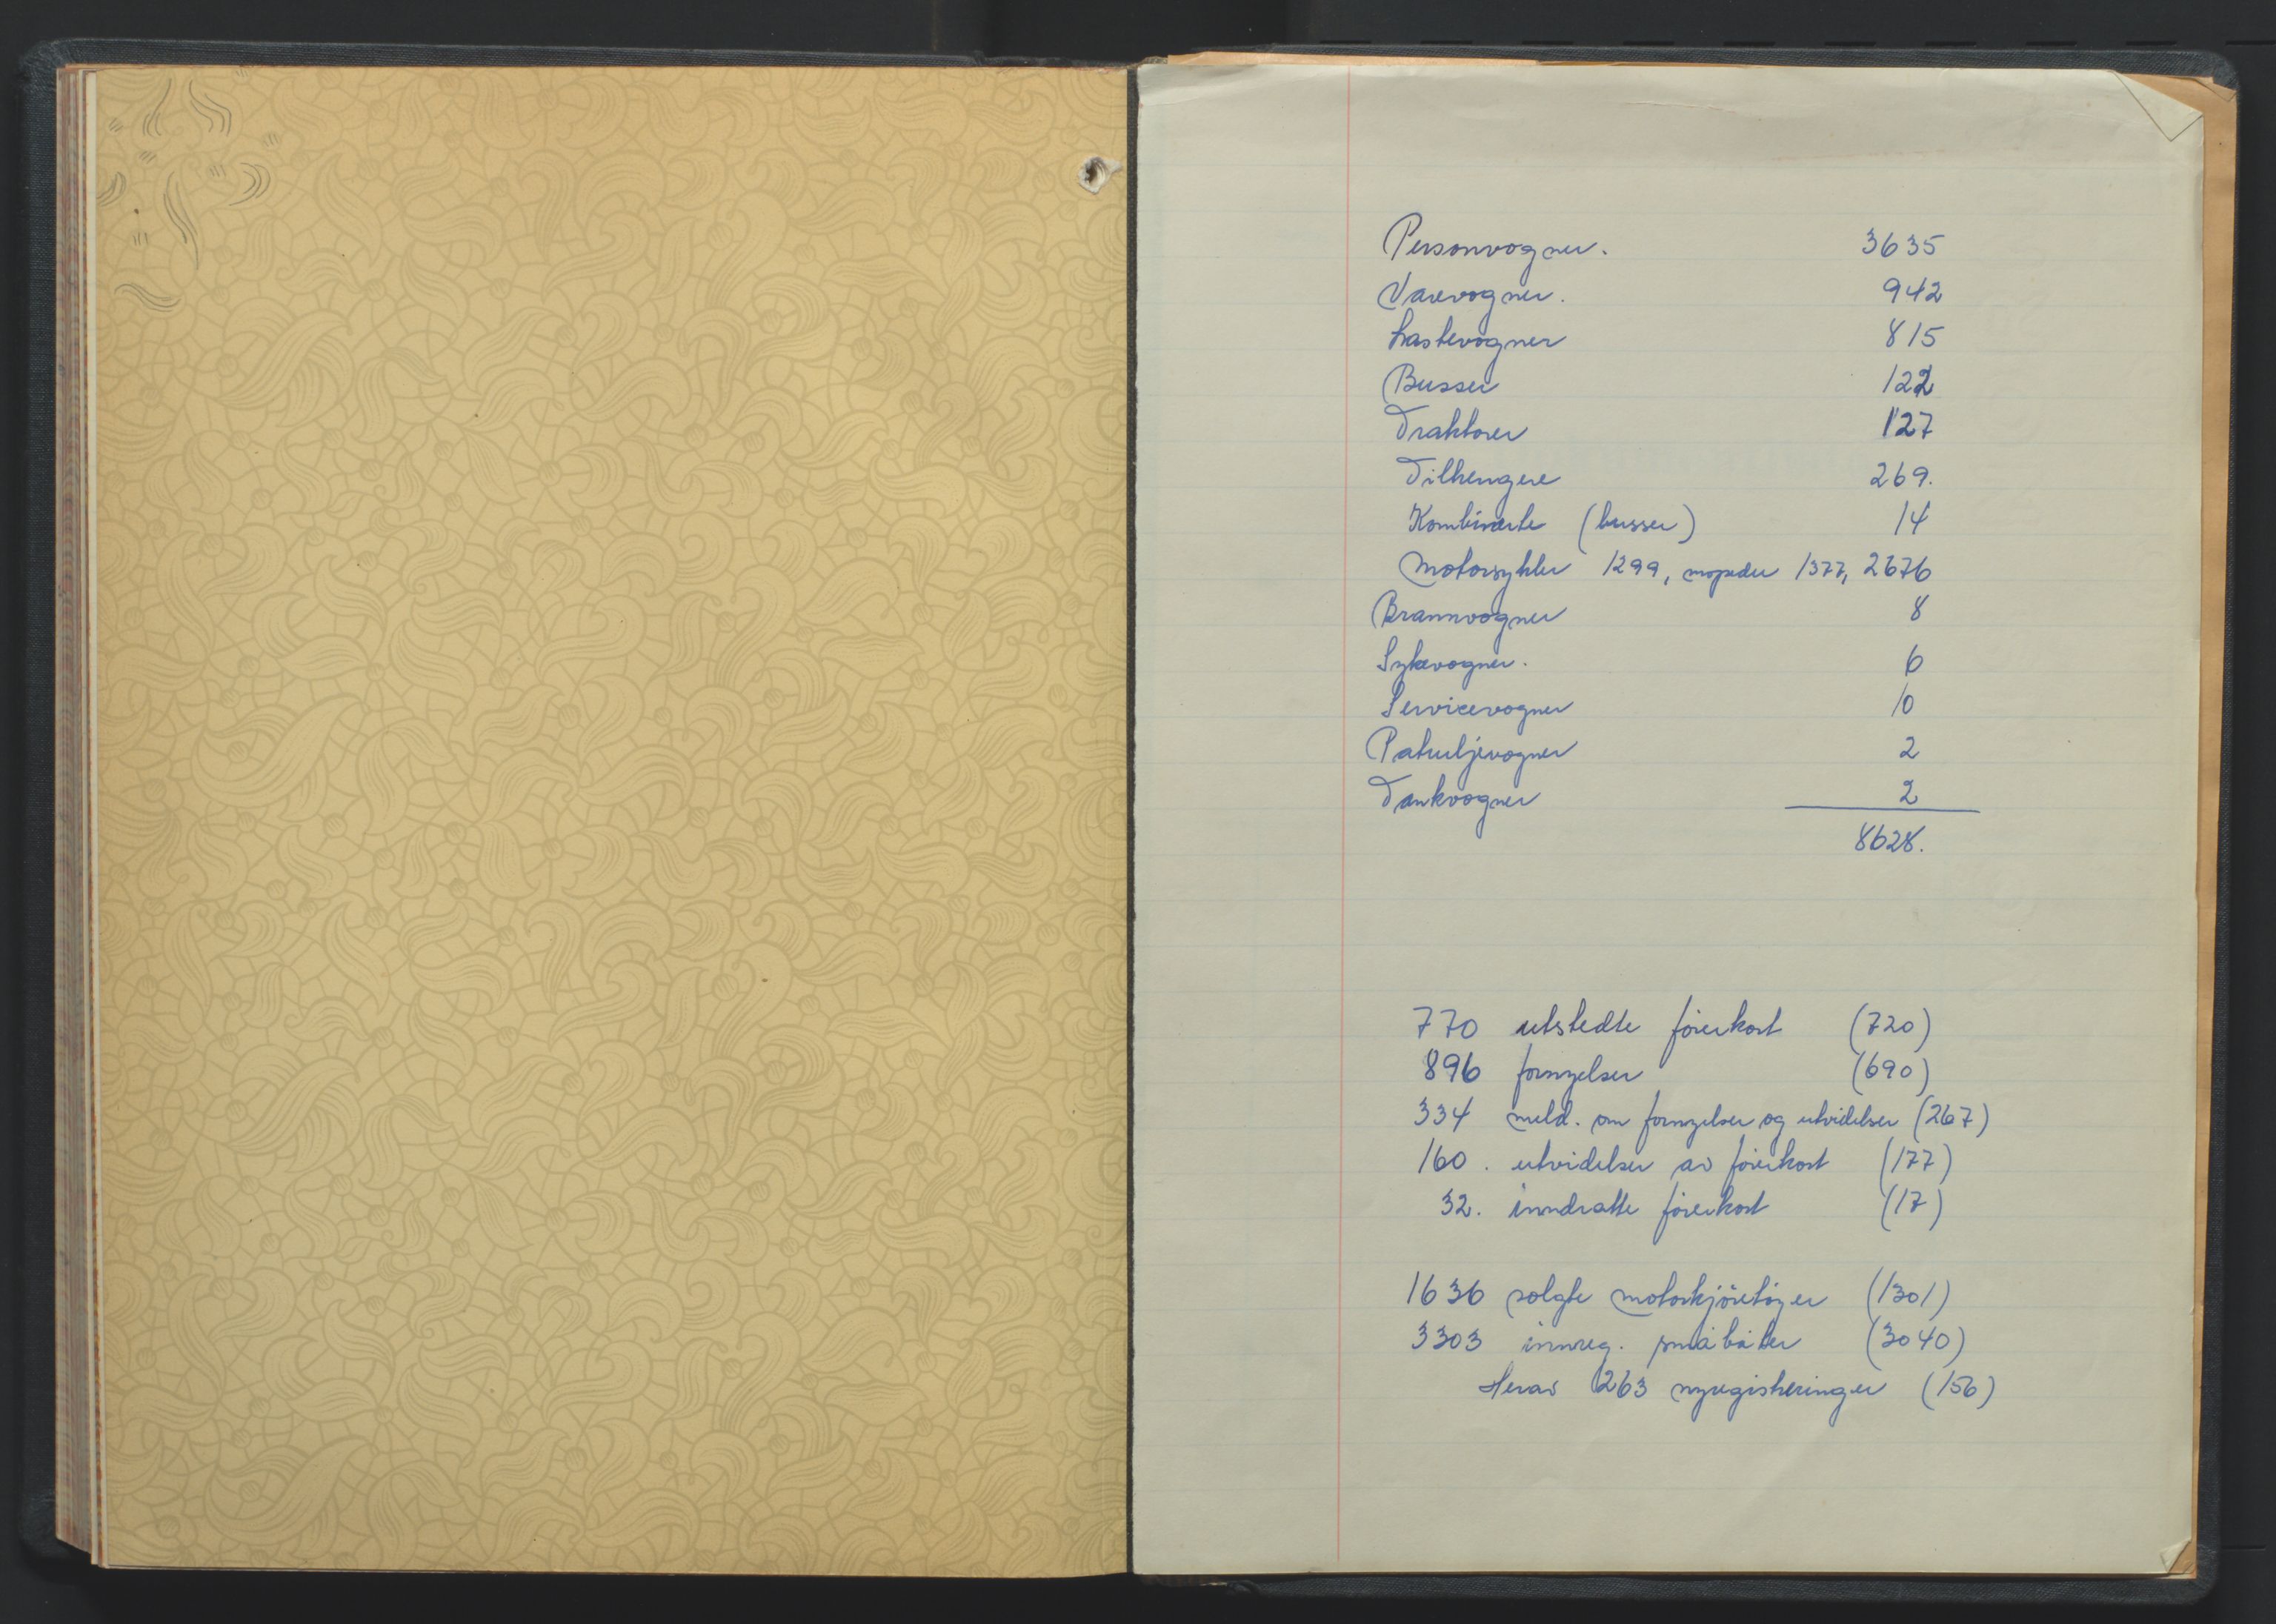 Personvogner. 3635
Varevogner. 942
Lastevogner 815
Busser 122
Traktorer 127
Tilhengere 269.
Kombinerte (busser) 14
Motorsykler 1299, mopeder 1377, 2676
Brannvogner 8
Sykevogner. 6
Servicevogner 10
Patruljevogner 2
Tankvogner 2
8628.
770 utstedte förerkort (720)
896 fornyelser (690)
334 meld. om fornyelser og utvidelser (267)
160. utvidelser av förerkort (177)
32. inndratte förerkort (17)
1636 solgte motorkjöretöyer (1301)
3303 innreg. småbåter (3040)
Herav 263 nyregistreringer (156)